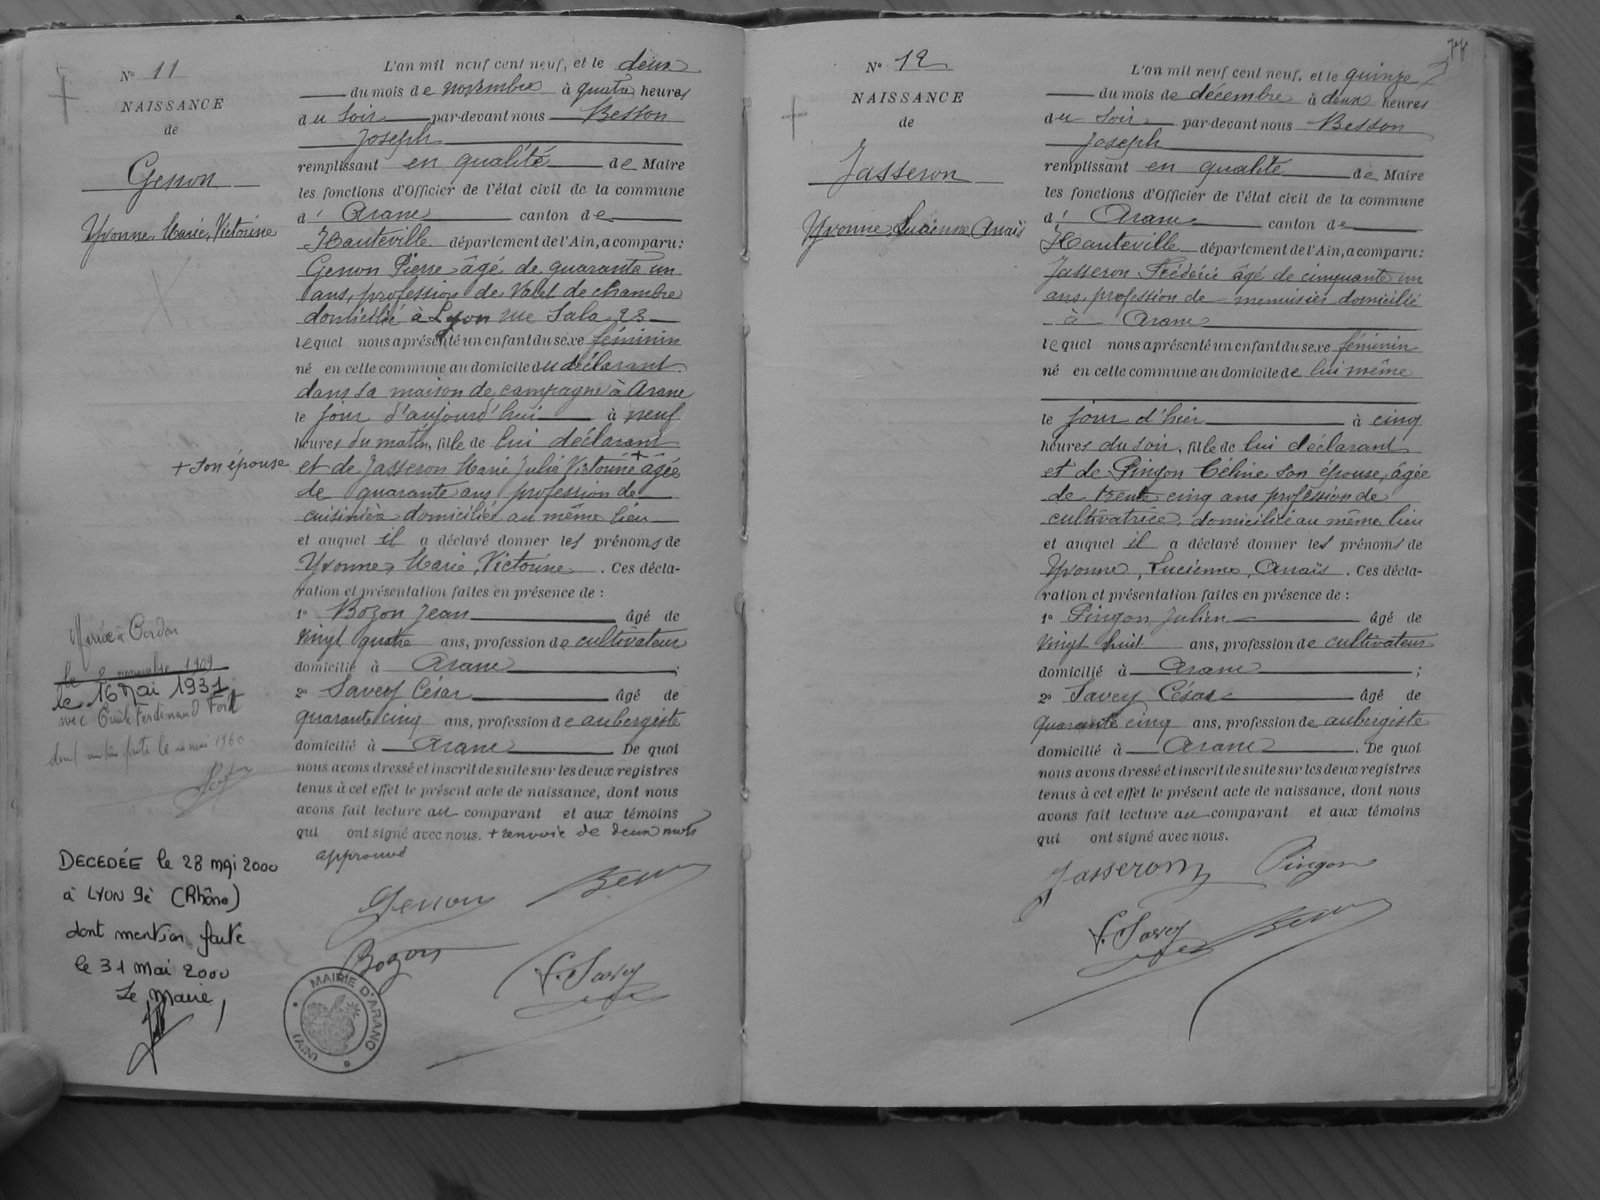 N° 11
NAISSANCE
de
Genon
Yvonne, Marie, Victorine
L'an mil neuf cent neuf, et le deux
du mois de novembre à quatre heures
du Soir par-devant nous Besson
Joseph
remplissant en qualité de Maire
les fonctions d'Officier de l'état civil de la commune
d' Aranc canton de
Hauteville département de l'Ain, a comparu :
Genon Pierre âgé de quarante un
ans, profession de Valet de chambre
domicilié à Lyon rue Sala 23
lequel nous a présenté un enfant du sexe féminin
né en cette commune au domicile du déclarant
dans sa maison de campagne à Aranc
le jour d'aujourd'hui à neuf
heures du matin, fille de lui déclarant
+ son épouse
et de Jasseron Marie Julie Victorine + âgée
de quarante ans profession de
cuisinière domiciliée au même lieu
et auquel il a déclaré donner les prénoms de
Yvonne, Marie, Victorine . Ces décla-
ration et présentation faites en présence de :
1° Bozon Jean âgé de
vingt quatre ans, profession de cultivateur
domicilié à Aranc ;
2° Savey César âgé de
quarante cinq ans, profession de aubergiste
domicilié à Aranc De quoi
nous avons dressé et inscrit de suite sur les deux registres
tenus à cet effet le présent acte de naissance, dont nous
avons fait lecture au comparant et aux témoins
qui ont signé avec nous. + renvoie de deux mots
approuvé
Genon
Bozon
Savey
Mariée à Cerdon
le 2 novembre 1909
le 16 Mai 1931
avec Ferdinand
DECEDÉE le 28 mai 2000
à LYON 9è (Rhône)
dont mention faite
le 31 mai 2000
Le Maire,
MAIRIE D'ARANC
(AIN)
N° 12
NAISSANCE
de
Jasseron
Yvonne Lucienne Anaïs
L'an mil neuf cent neuf, et le quinze
du mois de décembre à deux heures
du Soir par-devant nous Besson
Joseph
remplissant en qualité de Maire
les fonctions d'Officier de l'état civil de la commune
d' Aranc canton de
Hauteville département de l'Ain, a comparu :
Jasseron Frédéric âgé de cinquante un
ans, profession de menuisier domicilié
à Aranc
lequel nous a présenté un enfant du sexe féminin
né en cette commune au domicile de lui même
le jour d'hier à cinq
heures du soir, fille de lui déclarant
et de Pingon Céline son épouse, âgée
de trente cinq ans profession de
cultivatrice, domiciliée au même lieu
et auquel il a déclaré donner les prénoms de
Yvonne, Lucienne, Anaïs . Ces décla-
ration et présentation faites en présence de :
1° Pingon Julien âgé de
vingt huit ans, profession de cultivateur
domicilié à Aranc ;
2° Savey César âgé de
quarante cinq ans, profession de aubergiste
domicilié à Aranc . De quoi
nous avons dressé et inscrit de suite sur les deux registres
tenus à cet effet le présent acte de naissance, dont nous
avons fait lecture au comparant et aux témoins
qui ont signé avec nous.
Jasseron Pingon
Savey